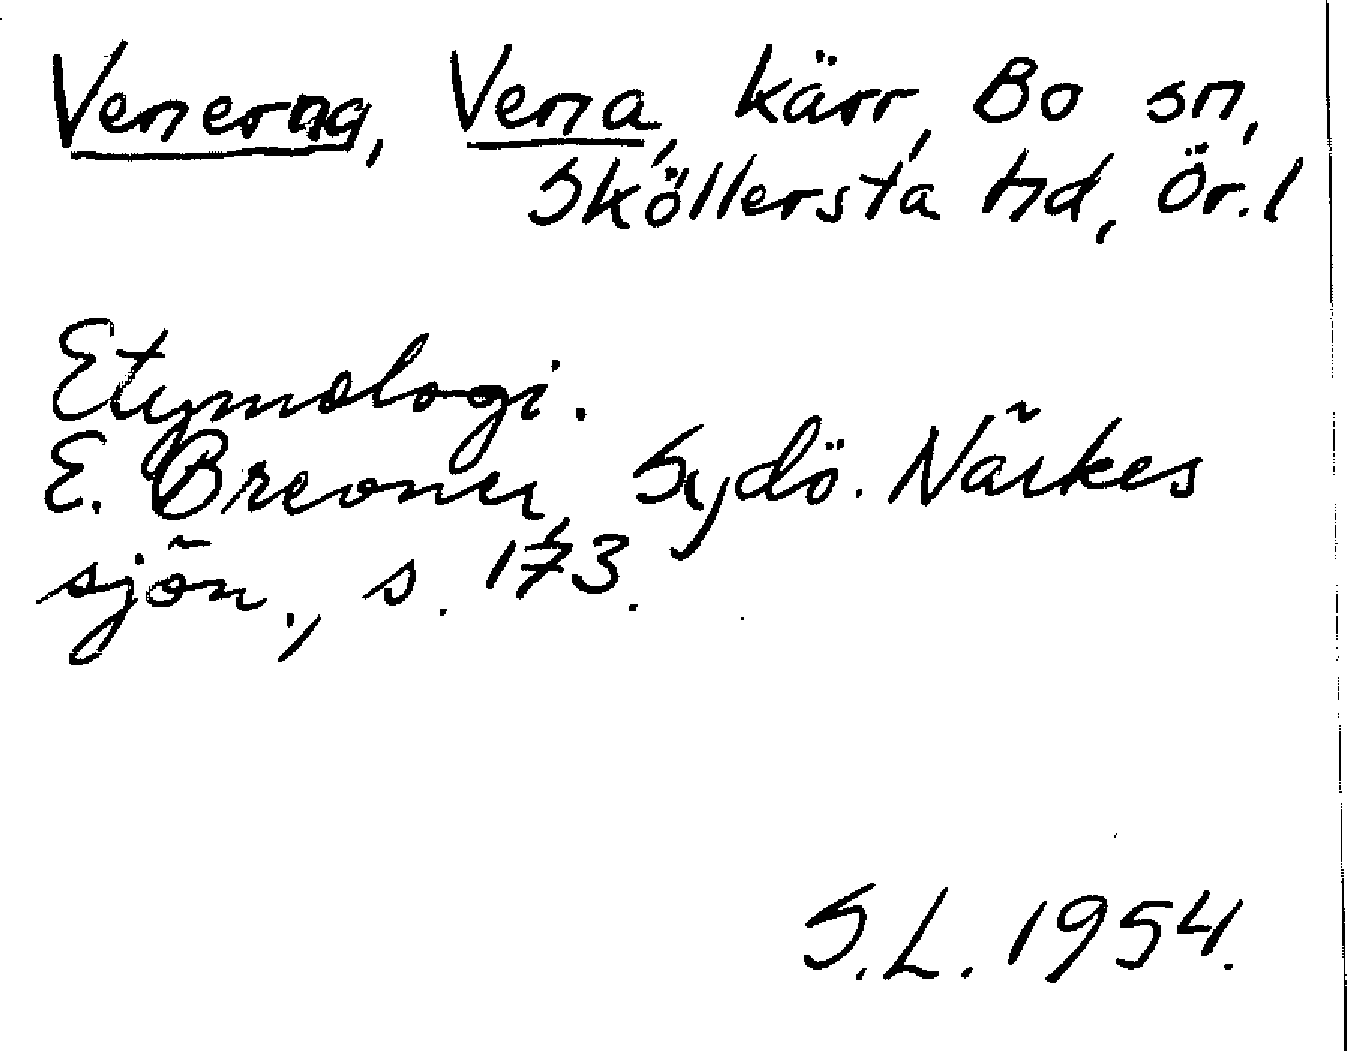 Venerna, Vena, kärr, Bo sn,
Sköllersta hd, Ör.l
Etymologi.
E. Brevner, Sydö. Närkes
sjön., s. 173.
S.L. 1954.